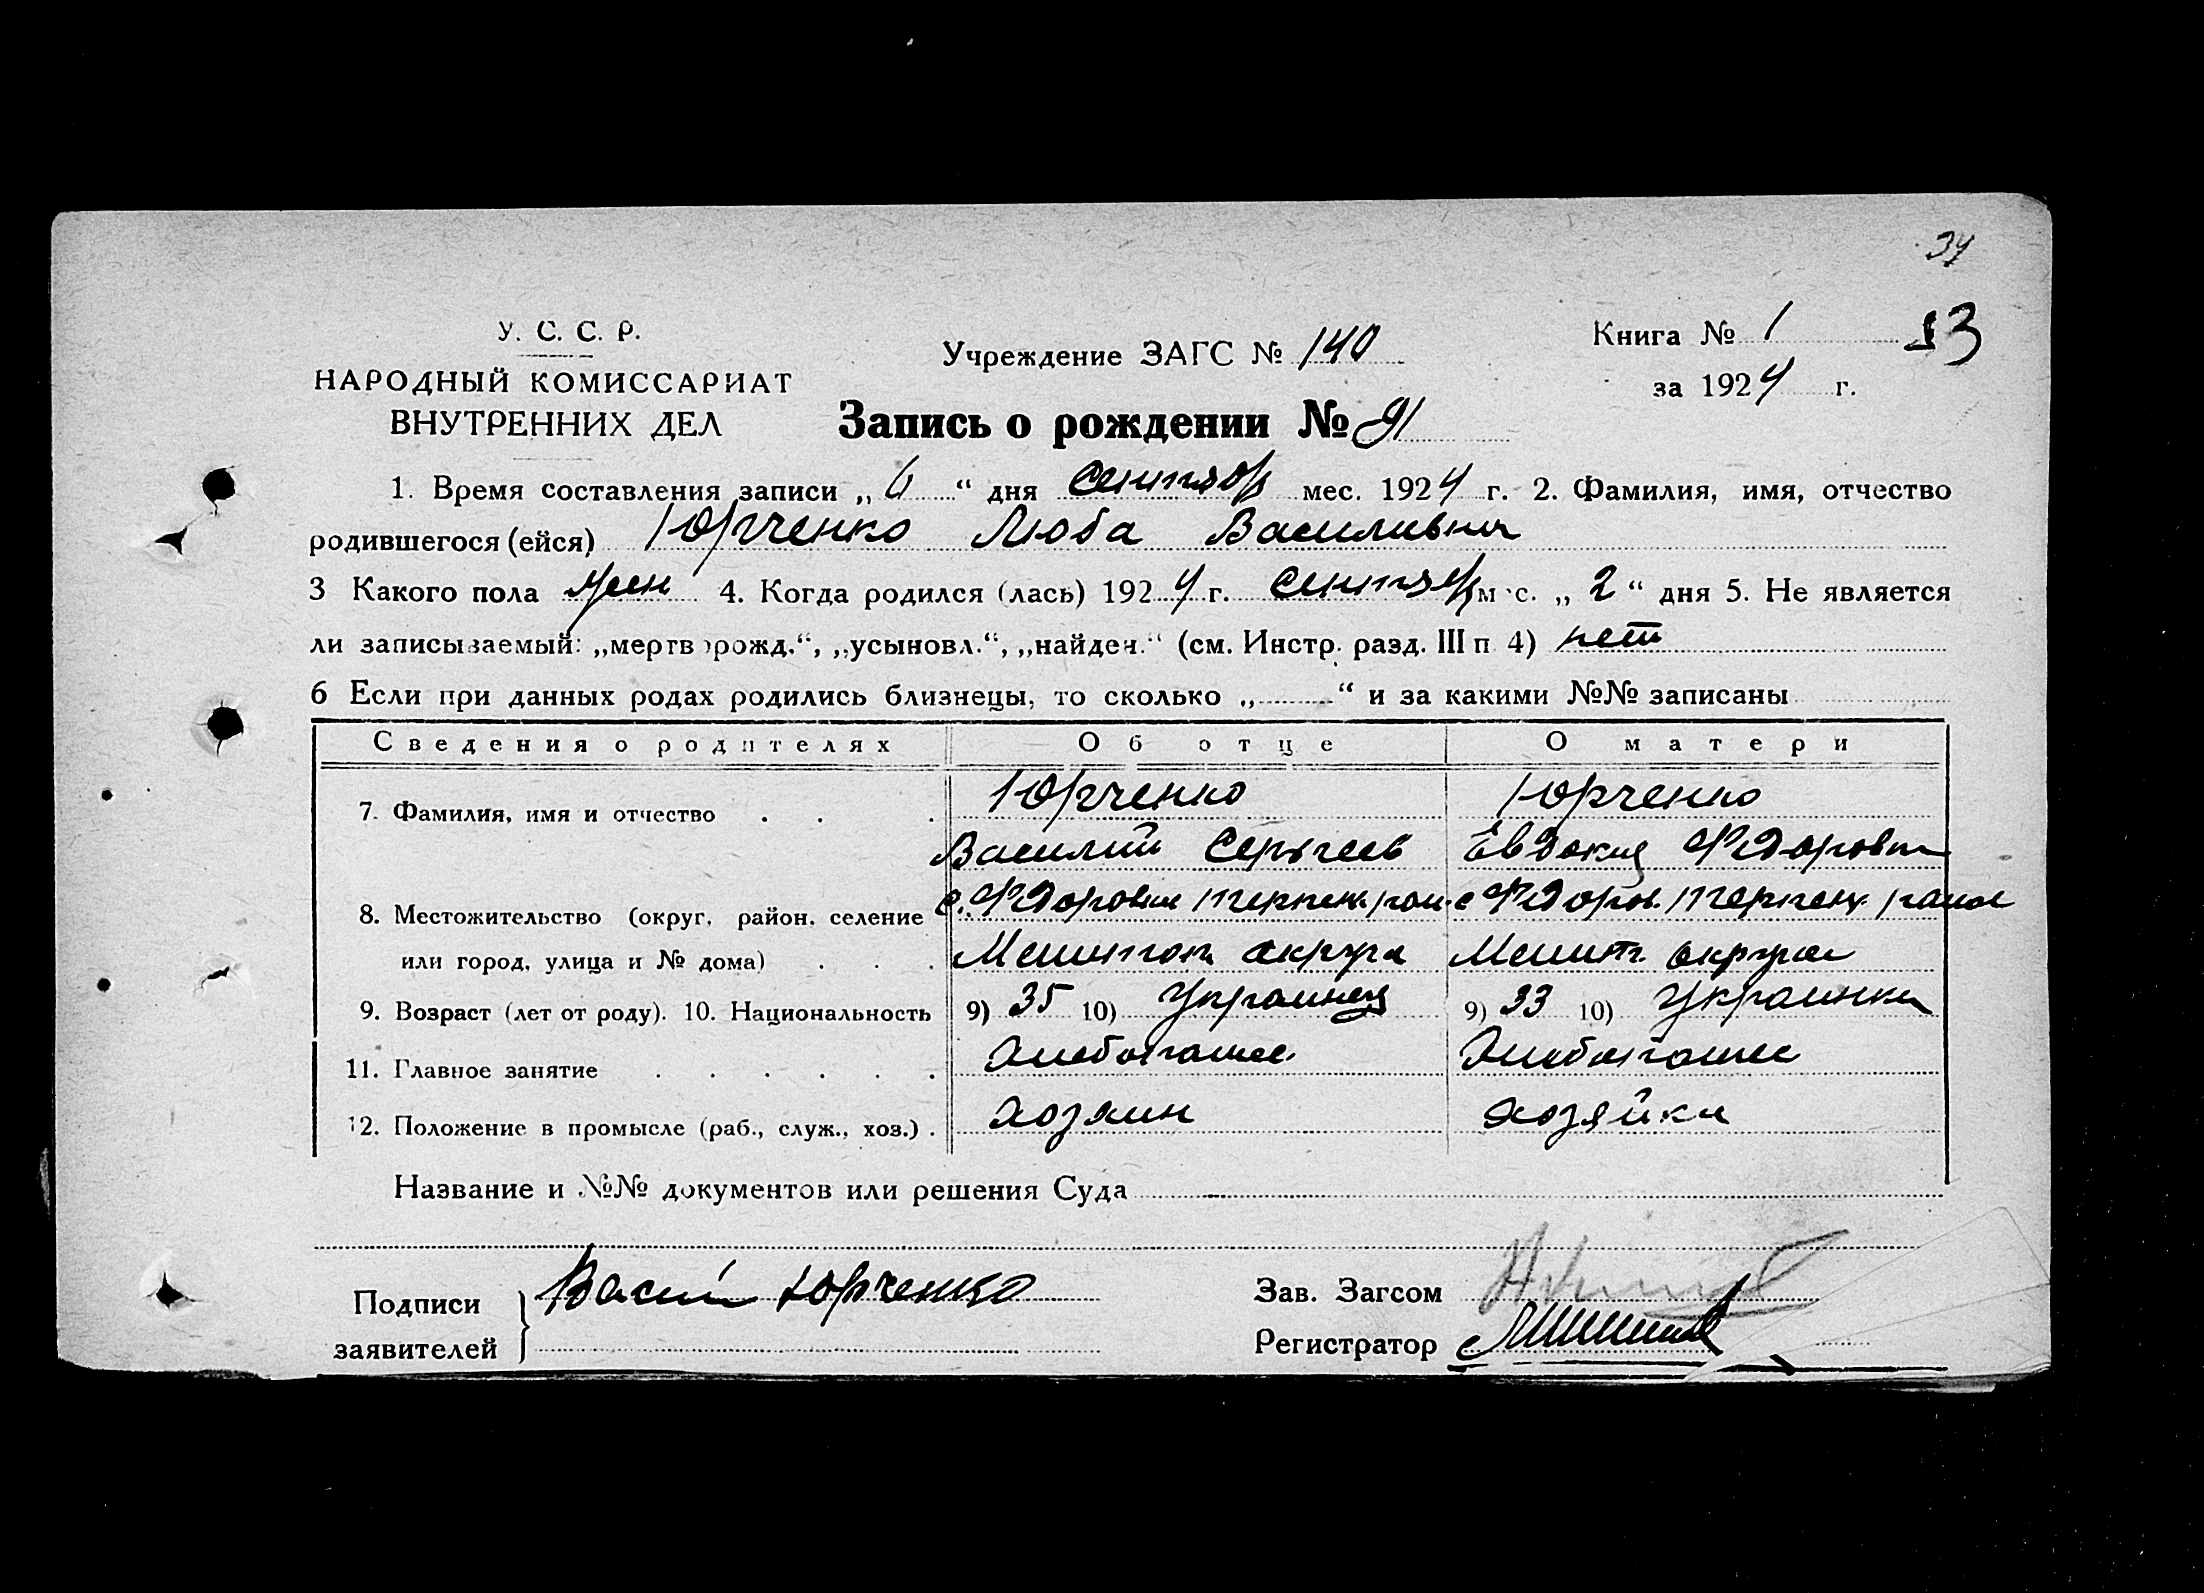 34
У. С. С. Р.
НАРОДНЫЙ КОМИССАРИАТ
ВНУТРЕННИХ ДЕЛ
Учреждение ЗАГС № 140
Книга № 1 53
за 1924 г.
Запись о рождении № 91
1. Время составления записи „ 6 “ дня сентябр мес. 1924 г. 2. Фамилия, имя, отчество
родившегося (ейся) Юрченко Люба Василивна
3 Какого пола жен 4. Когда родился (лась) 1924 г. сентябр м с. „ 2 “ дня 5. Не является
ли записываемый: „мертворожд.“, „усыновл.“, „найден.“ (см. Инстр. разд. III п 4) нет
6 Если при данных родах родились близнецы, то сколько „ “ и за какими №№ записаны
Сведения о родителях Об отце О матери
7. Фамилия, имя и отчество Юрченко Юрченко
Василий Сергеев Евдокия Фдоровна
8. Местожительство (округ, район, селение с. Фдоровка с Фдоров.
или город, улица и № дома) округа Мелит. округа
9. Возраст (лет от роду). 10. Национальность 9) 35 10) Украинец 9) 33 10) Украинка
11. Главное занятие Хлебопашес. Хлебопашес
12. Положение в промысле (раб., служ., хоз.) хозяин хозяйка
Название и №№ документов или решения Суда
Подписи
заявителей
Васил Юрченко
Зав. Загсом
Регистратор